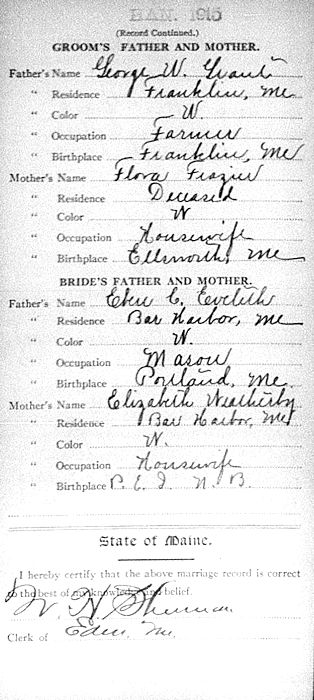 JAN. 1915
(Record Continued.)
GROOM'S FATHER AND MOTHER.
Father's Name George W. Grant
" Residence Franklin, Me
" Color W.
" Occupation Farmer
" Birthplace Franklin, Me
Mother's Name Flora Frazier
" Residence Deceased
" Color W
" Occupation Housewife
" Birthplace Ellsworth, Me
BRIDE'S FATHER AND MOTHER.
Father's Name Eben C. Eveleth
" Residence Bar Harbor, Me
" Color W.
" Occupation Mason
" Birthplace Portland, Me.
Mother's Name Elizabeth Weatherby
" Residence Bar Harbor, Me
" Color W.
" Occupation Housewife
" Birthplace P. E. I. N. B.
State of Maine.
I hereby certify that the above marriage record is correct
to the best of my knowledge and belief.
W. H. Sherman
Clerk of Eden, Me.